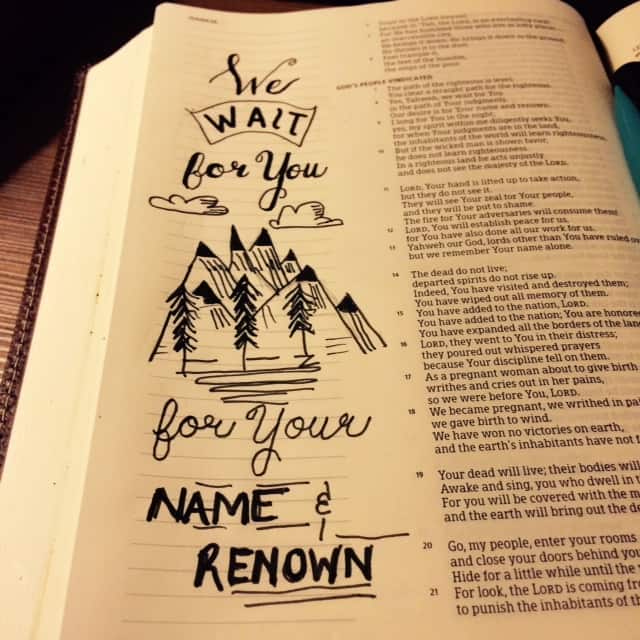 We
WAIT
for You
for Your
NAME &
RENOWN
GOD'S PEOPLE VINDICATED
The path of the righteous is level;
You clear a straight path for the righteous.
Yes, Yahweh, we wait for You
in the path of Your judgments.
Our desire is for Your name and renown.
I long for You in the night;
yes, my spirit within me diligently seeks You,
for when Your judgments are in the land,
the inhabitants of the world will learn righteousness.
But if the wicked man is shown favor,
he does not learn righteousness.
In a righteous land he acts unjustly
and does not see the majesty of the LORD.
11 LORD, Your hand is lifted up to take action,
but they do not see it.
They will see Your zeal for Your people,
and they will be put to shame.
The fire for Your adversaries will consume them!
12 LORD, You will establish peace for us,
for You have also done all our work for us.
13 Yahweh our God, lords other than You have ruled
but we remember Your name alone.
14 The dead do not live;
departed spirits do not rise up.
Indeed, You have visited and destroyed them;
You have wiped out all memory of them.
15 You have added to the nation, LORD.
You have added to the nation; You are honored
You have expanded all the borders of the
16 LORD, they went to You in their distress;
they poured out whispered prayers
because Your discipline fell on them.
17 As a pregnant woman about to give birth
writhes and cries out in her pains,
so we were before You, LORD.
18 We became pregnant, we writhed in
we gave birth to wind.
We have won no victories on earth,
and the earth's inhabitants have not
19 Your dead will live; their bodies will
Awake and sing, you who dwell in
For you will be covered with the
and the earth will bring out the
20 Go, my people, enter your rooms
and close your doors behind
Hide for a little while until the
21 For look, the LORD is coming
to punish the inhabitants of